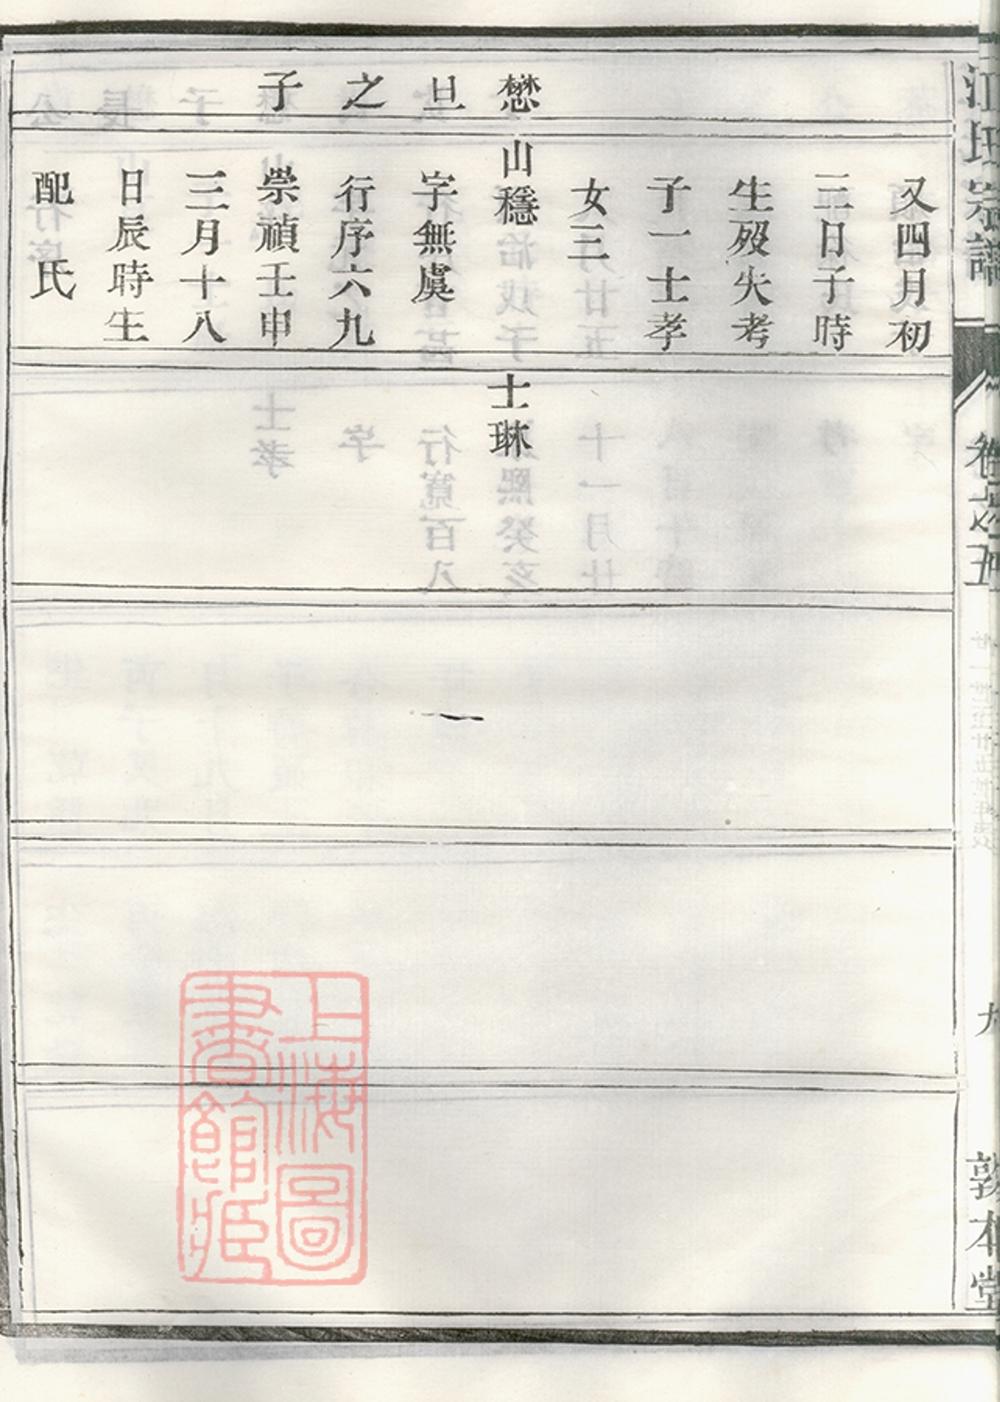 江氏宗譜
卷之五
九
敦本堂
懋旦之子
又四月初
二日子時
生歿失考
子一士孝
女三
山穩
字無虞
行序六九
崇禎壬申
三月十八
日辰時生
配氏
士琳
上海圖
書館藏